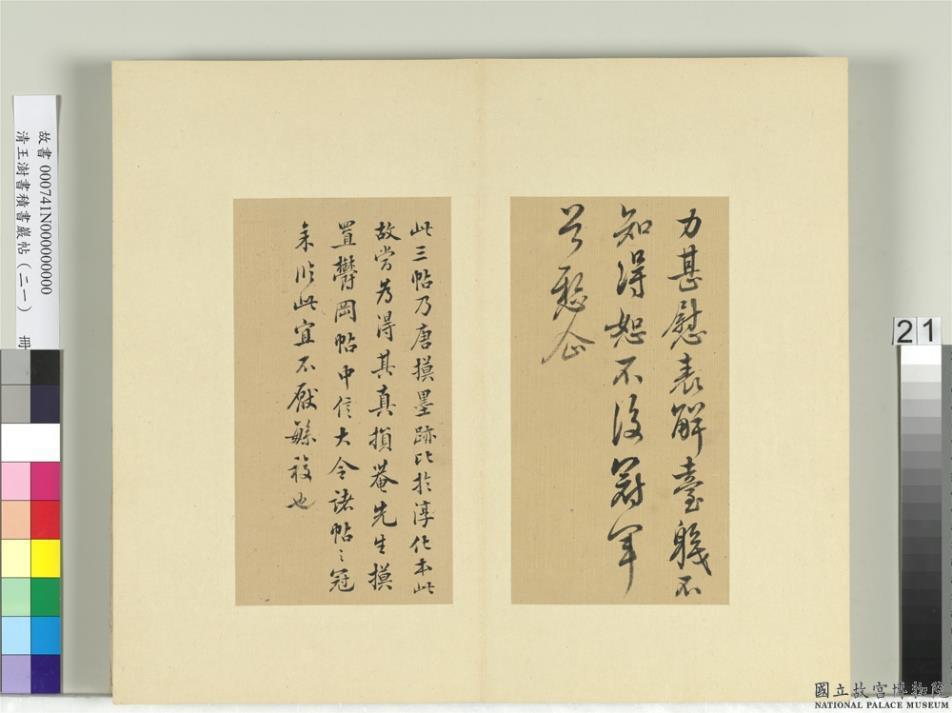 力甚慰表解臺躬不
知得恕不復冠軍
公愁企
此三帖乃唐摸墨跡比於淳化本此
故當為得其真損菴先生摸
置欝岡帖中信大令諸帖之冠
余收此宜不厭繇複也
故書 000741N000000000
清王澍書積書巖帖(二一) 冊
21
國立故宮博物院
NATIONAL PALACE MUSEUM